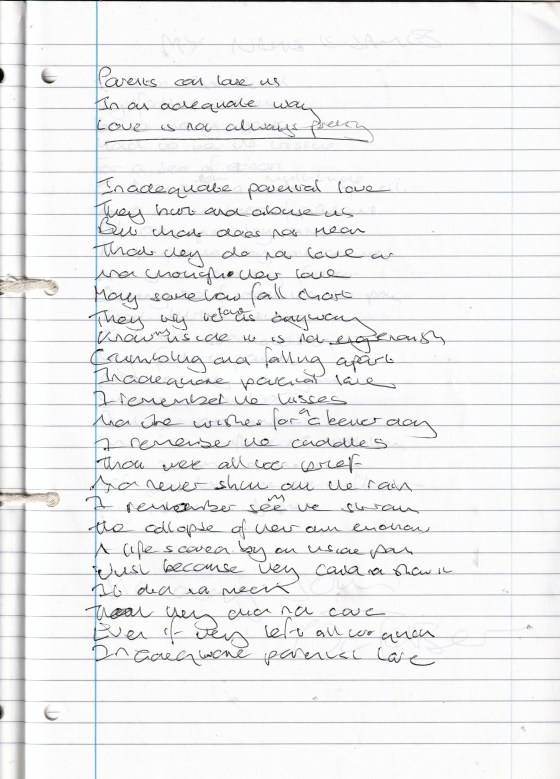 Parents can love us
In an adequate way
Love is not always pretty
Inadequate parental love
They hurt and abuse us
But that does not mean
That they do not love us
And though their love
May somehow fall short
They try to love us anyway
Know inside it is not enough
Crumbling and falling apart
Inadequate parental love
I remember the kisses
And the wishes for a better day
I remember the cuddles
That were all too brief
And never shut out the rain
I remember seeing the strain
The collapse of their own emotion
A life scarred by an inside pain
Just because they could not show it
It did not mean
That they did not care
Even if they left all too
Inadequate parental love